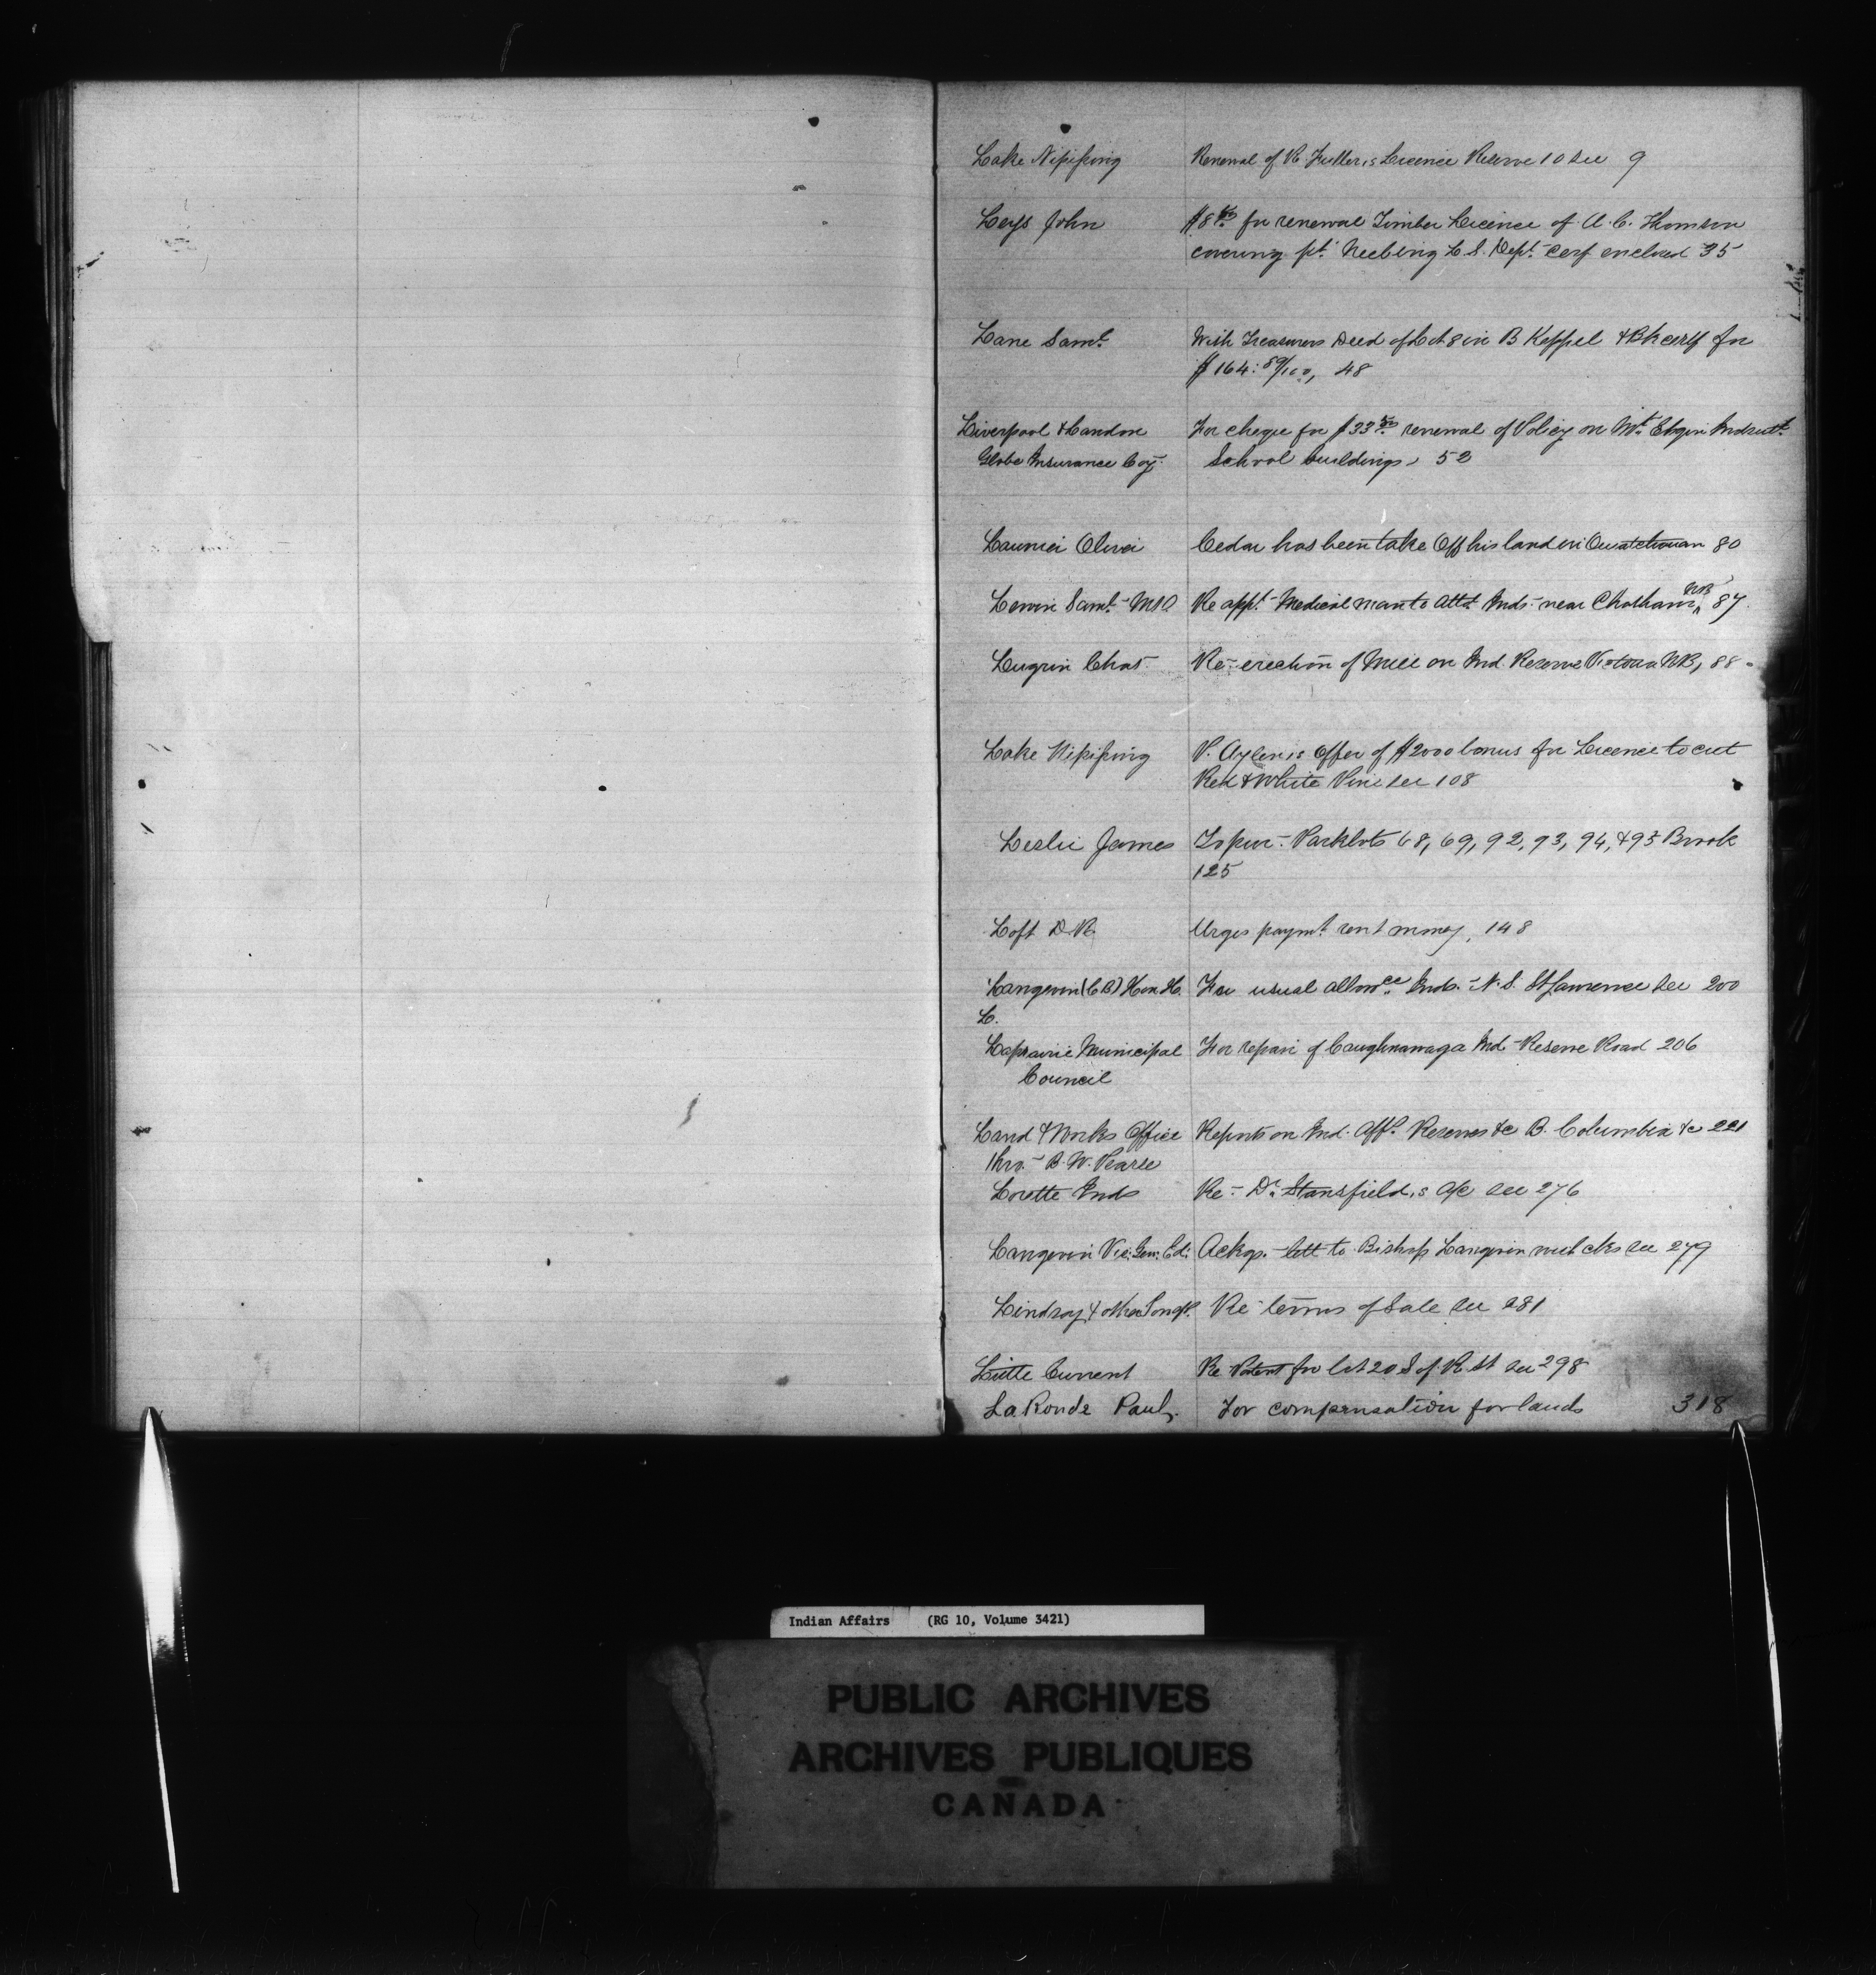 Lake Nipissing Renewal of R Fuller,s Licence Reserve 10 see 9
Leys John $8 50 for renewal Timber Licence of A. C. Thomson
covering pt. Neebing L. S. Dept. Cerf enclosed 35
Lane Saml. With Treasurers Deed of Lot 8 in B Keppel & Bk certf for
$164: 89/100, 48
Liverpool & London For cheque for $33 50 renewal of Policy on Mt. Elgin Indust.
Globe Insurance Coy. School buildings, 52
Launier Olivier Cedar has been take off his land in Ouiatchouan 80
Lewin Saml. Re appt. Medical man to Attd. Inds. near Chatham NB 87
Lugrin Chas Re-erection of Mill on Ind. Reserve Victoria NB, 88
Lake Nipissing P. Aylen,s Offer of $2000 bonus for Licence to cut
Red & White Pine see 108
Leslie James To pur. Parklots 68, 69, 92, 93, 94, & 95 Brook
125
Loft D R Urges paymt. rent money, 148
Langevin (CB) Hon. H. For usual allowce Inds. N. S. St Lawrence see 200
L.
Laprairie Municipal For repair of Caughnawaga Ind. Reserve Road 206
Council
Land & Works Office Reports on Ind. Affs. Reserves &c B. Columbia &c 221
thro. B. W. Pearse
Lorette Inds Re. Dr. Stansfield,s a/c see 276
Langevin Vic. Gen. Ed. Ackgs. lett to Bishop Langevin with cks see 279
Lindsay & other Re terms of Sale see 281
Little Current Re Patent for lot 20 S of R. St see 298
LaRonde Paul, For compensation for lands 318
Indian Affairs (RG 10, Volume 3421)
PUBLIC ARCHIVES
ARCHIVES PUBLIQUES
CANADA